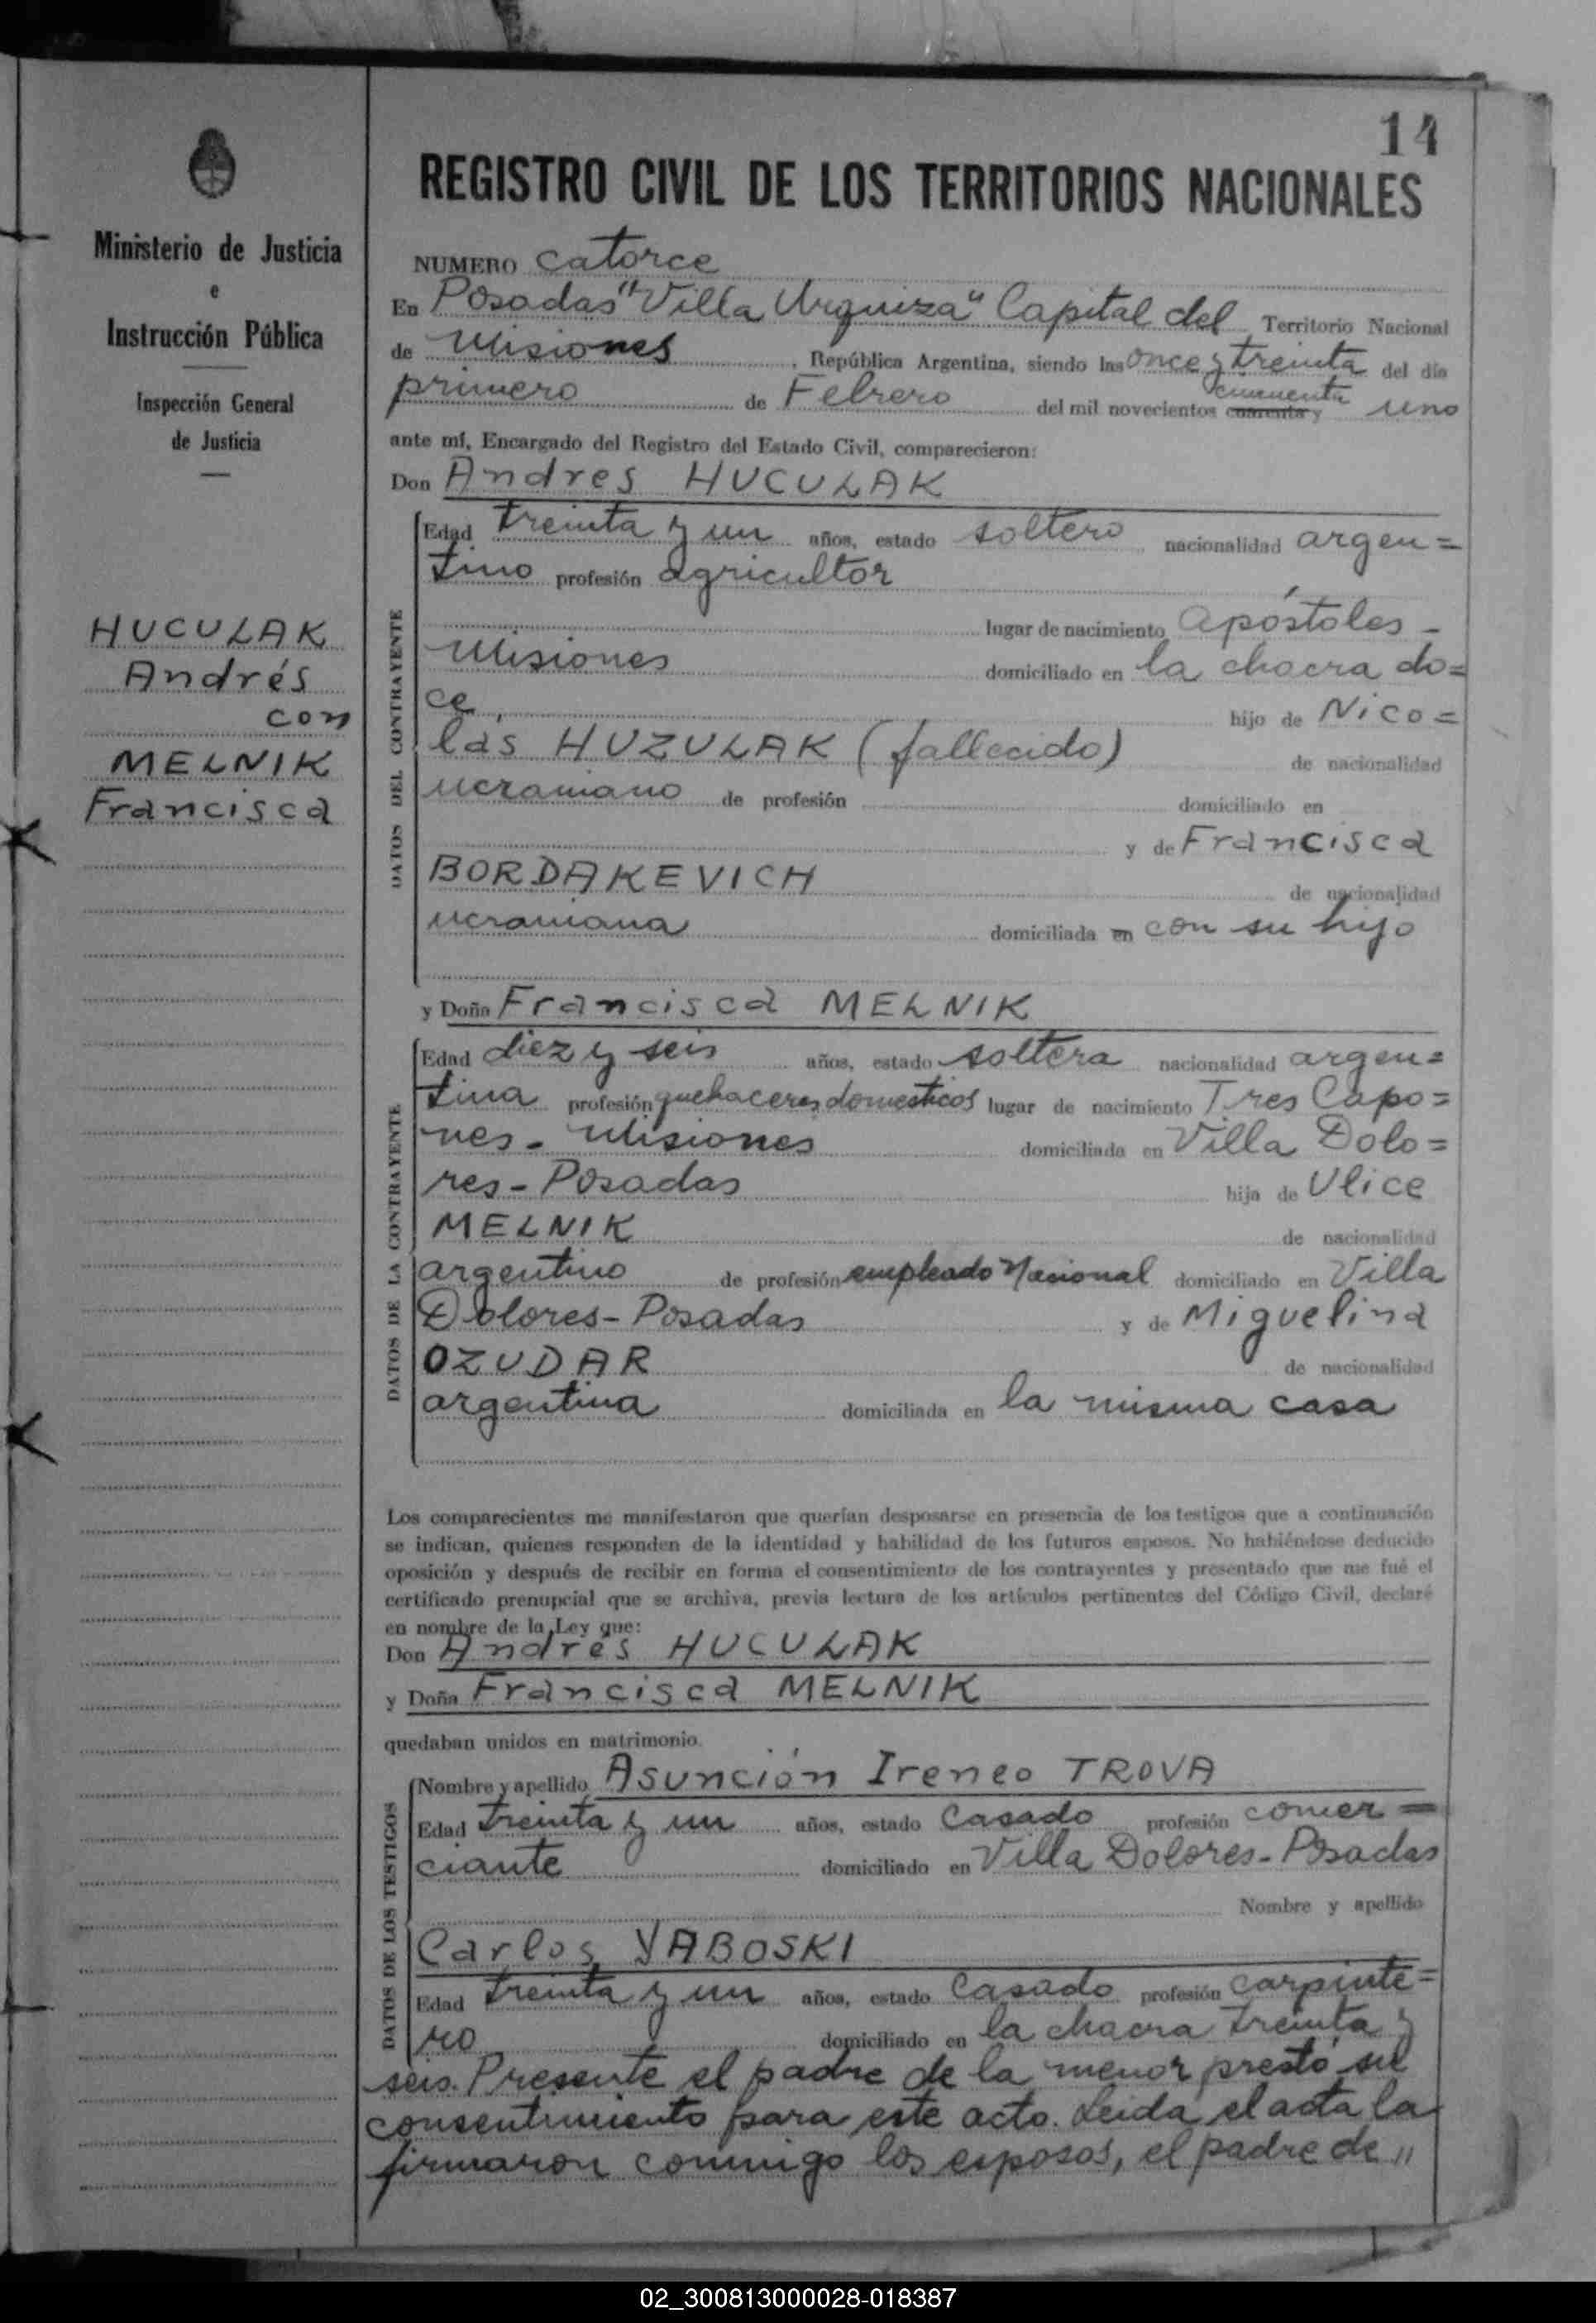 14
REGISTRO CIVIL DE LOS TERRITORIOS NACIONALES
Ministerio de Justicia
e
Instrucción Pública
Inspección General
de Justicia
HUCULAK
Andrés
con
MELNIK
Francisca
NUMERO catorce
En Posadas "Villa Urquiza" Capital del Territorio Nacional
de Misiones, República Argentina, siendo las once y treinta del día
primero de Febrero del mil novecientos cuarenta y cincuenta uno
ante mí, Encargado del Registro del Estado Civil, comparecieron:
Don Andres HUCULAK
DATOS DEL CONTRAYENTE
Edad treinta y un años, estado soltero nacionalidad argen=
tino profesión agricultor
lugar de nacimiento apóstoles -
Misiones domiciliado en la chacra do=
ce, hijo de Nico=
lás HUZULAK (fallecido) de nacionalidad
ucraniano de profesión domiciliado en
y de Francisca
BORDAKEVICH de nacionalidad
ucraniana domiciliada en con su hijo
y Doña Francisca MELNIK
DATOS DE LA CONTRAYENTE
Edad diez y seis años, estado soltera nacionalidad argen=
tina profesión quehaceres domesticos lugar de nacimiento Tres Capo=
nes - Misiones domiciliada en Villa Dolo=
res - Posadas hija de Ulice
MELNIK de nacionalidad
argentino de profesión empleado Nacional domiciliado en Villa
Dolores - Posadas y de Miguelina
OZUDAR de nacionalidad
argentina domiciliada en la misma casa
Los comparecientes me manifestaron que querían desposarse en presencia de los testigos que a continuación
se indican, quienes responden de la identidad y habilidad de los futuros esposos. No habiéndose deducido
oposición y después de recibir en forma el consentimiento de los contrayentes y presentado que me fué el
certificado prenupcial que se archiva, previa lectura de los artículos pertinentes del Código Civil, declaré
en nombre de la Ley que:
Don Andrés HUCULAK
y Doña Francisca MELNIK
quedaban unidos en matrimonio.
DATOS DE LOS TESTIGOS
Nombre y apellido Asunción Ireneo TROVA
Edad treinta y un años, estado casado profesión comer=
ciante domiciliado en Villa Dolores - Posadas
Nombre y apellido
Carlos YABOSKI
Edad treinta y un años, estado casado profesión carpinte=
ro domiciliado en la chacra treinta y
seis. Presente el padre de la menor prestó su
consentimiento para este acto. Leida el acta la
firmaron conmigo los esposos, el padre de "
02_300813000028-018387